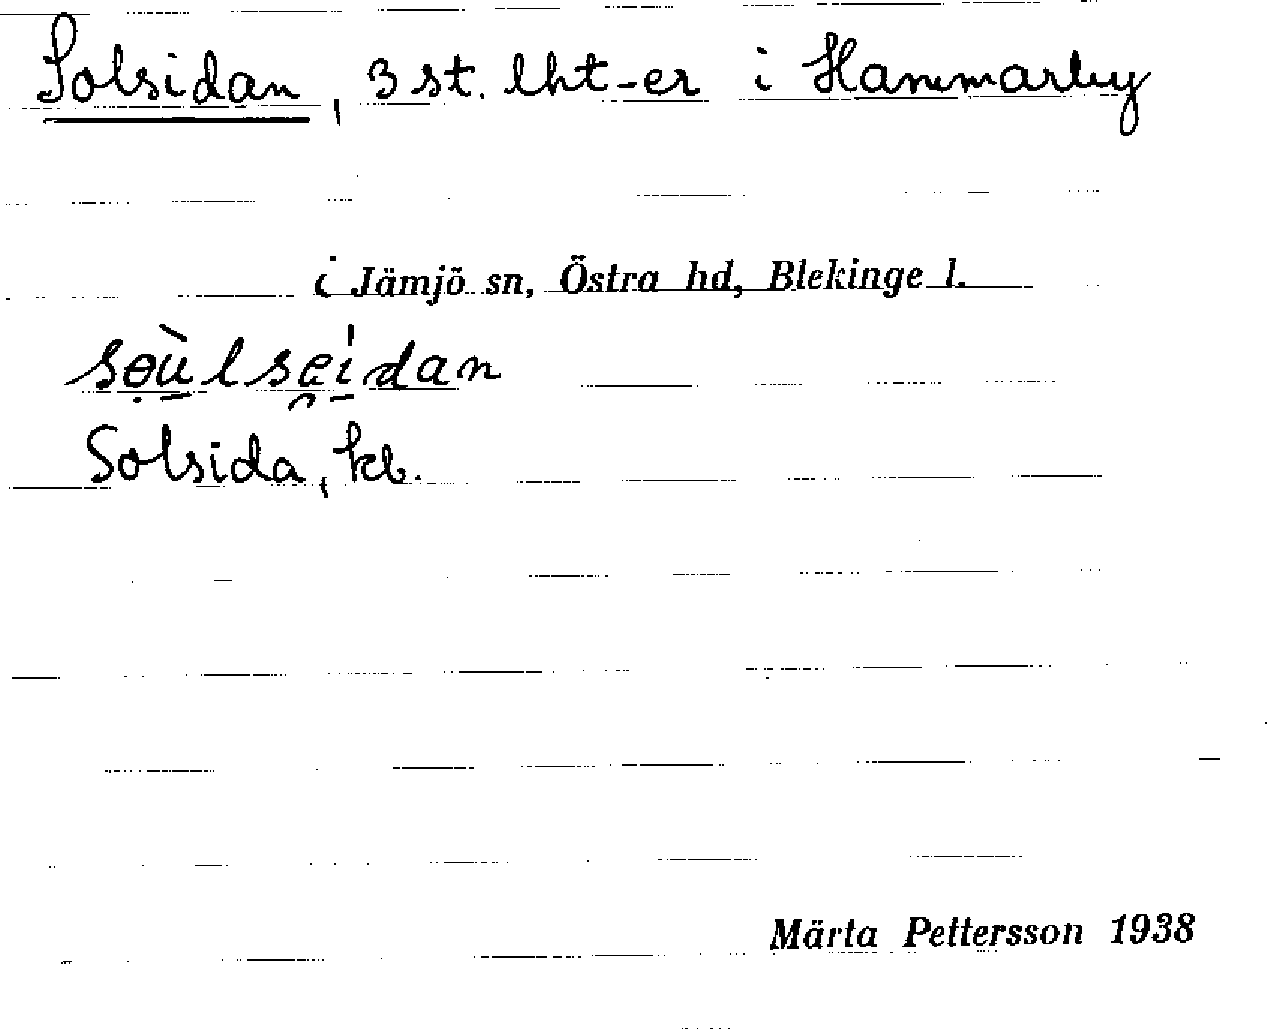 Solsidan, 3 st. lht-er i Hammarby
i Jämjö sn, Östra hd, Blekinge l.
sɵ̣ùlsei̍dan
Solsida, kb.
Märta Pettersson 1938